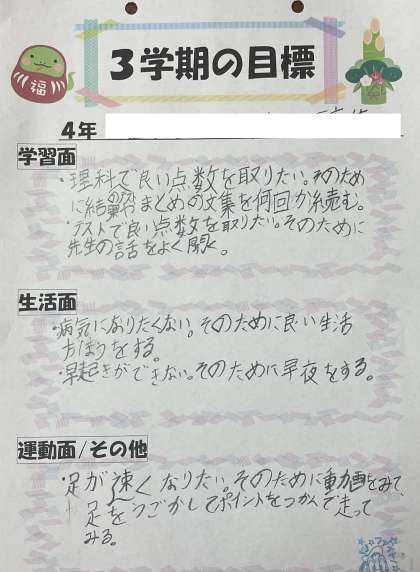 福
3学期の目標
4年
学習面
・理科で良い点数を取りたい。そのため
に結果やまとめの文集を何回か読む。
・テストで良い点数を取りたい。そのために
先生の話をよく聞く。
生活面
・病気になりたくない。そのために良い生活
方ほうをする。
・早起きができない。そのために早夜をする。
運動面/その他
・足が速くなりたい。そのために動画をみて、
足をうごかしてポイントをつかんで走って
みる。